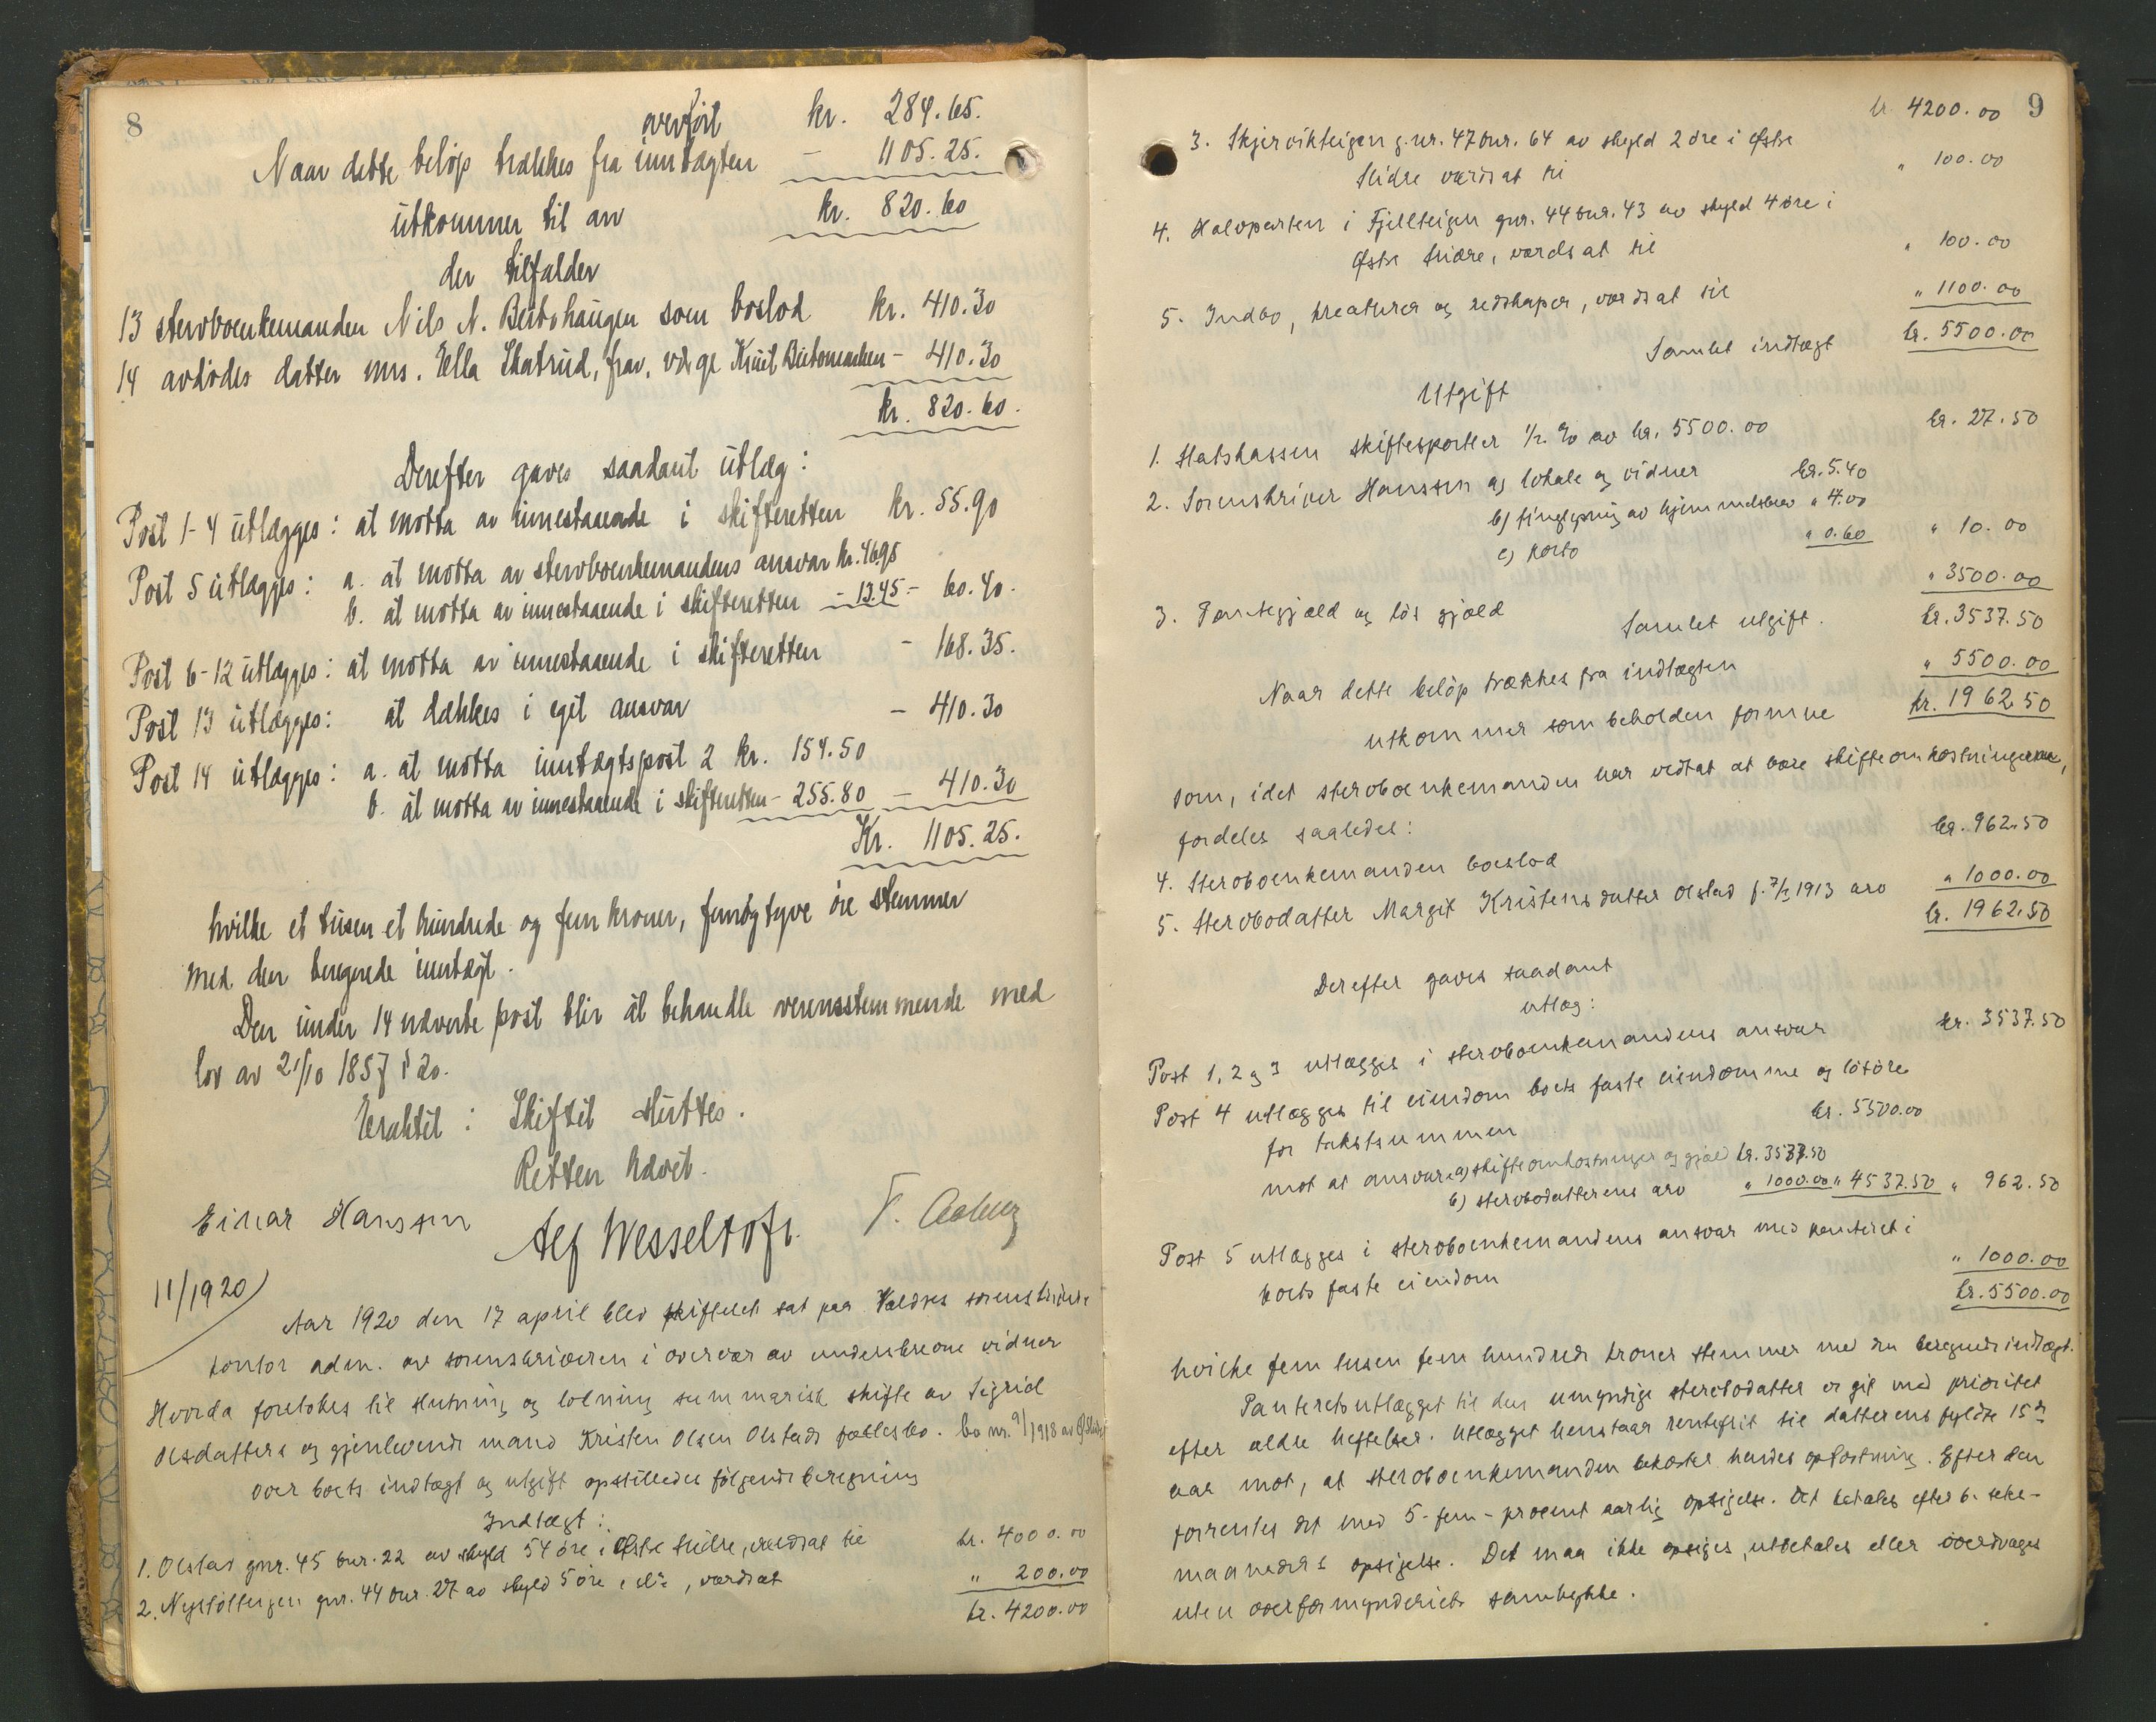 8
overført kr. 284.65.
Naar dette beløp trækkes fra inntægten - 1105.25.
utkommer til arv kr. 820.60
der tilfalder
13 stervboenkemanden Nils N. Beitohaugen som boslod kr. 410.30
14 avdødes datter mrs. Ella Skatrud, frav. verge Knut Beitomarken - 410.30
kr. 820.60.
Derefter gaves saadant utlæg:
Post 1-4 utlægges: at motta av innestaaende i skifteretten kr. 55.90
Post 5 utlægges: a. at motta av stervboenkemandens ansvar kr. 46.95
b. at motta av innestaaende i skifteretten - 13.45 - 60.40.
Post 6-12 utlægges: at motta av innestaaende i skifteretten - 168.35.
Post 13 utlægges: at dækkes i eget ansvar - 410.30
Post 14 utlægges: a. at motta inntægtspost 2 kr. 154.50
b. at motta av innestaaende i skifteretten - 255.80 - 410.30
Kr. 1105.25.
hvilke et tusen et hundrede og fem kroner, femogtyve øre stemmer
med den beregnede inntægt.
Den under 14 nævnte post blir at behandle overensstemmende med
lov av 21/10 1857 § 20.
Eraktet: Skiftet sluttes.
Retten hævet.
Einar Hanssen Alf Wesseltoft.
11/1920
Aar 1920 den 17 april blev skifteret sat paa Valdres sorenskriver
kontor adm. av sorenskriveren i overvær av underskrevne vidner
Hvorda foretokes til slutning og lodning summarisk skifte av Sigrid
Olsdatters og gjenlevende mand Kristen Olsen Olstads fællesbo. bo nr. 9/1918 av Ø. Slidre
over boets indtægt og utgift opstilledes følgende beregning
Indtægt:
1. Olstad gnr. 45 bnr. 22 av skyld 54 øre i Østre Slidre, værdsat til kr. 4000.00
2. gnr. 44 bnr. 27 av skyld 5 øre i do, værdsat " 200.00
kr. 4200.00
9
kr. 4200.00
3. Skjervikteigen g.nr. 47 bnr. 64 av skyld 2 øre i Østre
Slidre værdsat til " 100.00
4. Halvparten i Fjellteigen gnr. 44 bnr. 43 av skyld 4 øre i
Østre Slidre, værdsat til " 100.00
5. Indbo, kreaturer og redskaper, værdsat til " 1100.00
Samlet indtægt kr. 5500.00
Utgift
1. Statskassen skiftesportler 1/2 % av kr. 5500.00 kr. 27.50
2. Sorenskriver Hanssen a) lokale og vidner kr. 5.40
b) tinglysning av hjemmelsbrev " 4.00
c) porto " 0.60 " 10.00
3. Pantegjæld og løs gjæld " 3500.00
Samlet utgift. kr. 3537.50
Naar dette beløp trækkes fra indtægten " 5500.00
utkommer som beholden formue kr. 1962.50
som, idet stervboenkemanden har vedtat at bære skifteomkostningerne,
fordeles saaledes:
4. Stervboenkemanden boslod kr. 962.50
5. Stervbodatter Margit Kristensdatter Olstad f. 7/1 1913 arv " 1000.00
kr. 1962.50
Derefter gaves saadant
utlæg:
Post 1, 2 og 3 utlægges i stervboenkemandens ansvar kr. 3537.50
Post 4 utlægges til eiendom boets faste eiendomme og løsøre
for takstsummen kr. 5500.00
mot at ansvare a) skifteomkostninger og gjæld kr. 3537.50
b) stervbodatterens arv " 1000.00 " 4537.50 " 962.50
Post 5 utlægges i stervboenkemandens ansvar med panteret i
boets faste eiendom " 1000.00
kr. 5500.00
hvilke fem tusen fem hundrede kroner stemmer med den beregnede indtægt.
Panteretsutlægget til den umyndige stervbodatter er git med prioritet
efter ældre heftelser. Utlægget henstaar rentefrit til datterens fyldte 15de
aar mot, at stervboenkemanden bekoster hendes opfostring. Efter den
forrentes det med 5 - fem - procent aarlig opsigelse. Det betales efter 6 - seks -
maaneders opsigelse. Det maa ikke opsiges, utbetales eller overdrages
uten overformynderiets samtykke.